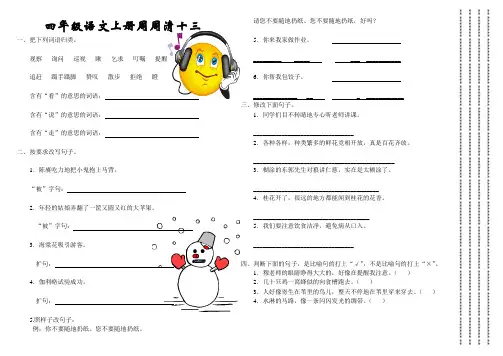 四年级语文上册周周清十三
一、把下列词语归类。
观察 询问 巡视 瞅 乞求 叮嘱 提醒
追赶 蹑手蹑脚 赞叹 散步 拒绝 瞪
含有“看”的意思的词语：
含有“说”的意思的词语：
含有“走”的意思的词语：
二、按要求改写句子。
1．陈赓吃力地把小鬼抱上马背。
“被”字句：
2．年轻的姑娘弄翻了一筐又圆又红的大苹果。
“被”字句：
3．海棠花吸引游客。
扩句：
4．伽利略试验成功。
扩句：
5.照样子改句子。
例：你不要随地扔纸。您不要随地扔纸。
请您不要随地扔纸。您不要随地扔纸，好吗？
5．你来我家做作业。
6．你帮我包饺子。
三、修改下面句子。
1．同学们目不转睛地专心听老师讲课。
2．各种各样，种类繁多的鲜花竞相开放，真是百花齐放。
3．糊涂的东郭先生对狼讲仁慈，实在是太糊涂了。
4．桂花开了，很远的地方都能闻到桂花的花香。
5．我们要注意饮食洁净，避免病从口入。
四、判断下面的句子，是比喻句的打上“√”，不是比喻句的打上“×”。
1．穆老师的眼睛睁得大大的，好像在提醒我注意。（ ）
2．几十只鸡一窝蜂似的向食槽跑去。（ ）
3．人好像寄生在苇里的鸟儿，整天不停地在苇里穿来穿去。（ ）
4．水淋的马路，像一条闪闪发光的绸带。（ ）